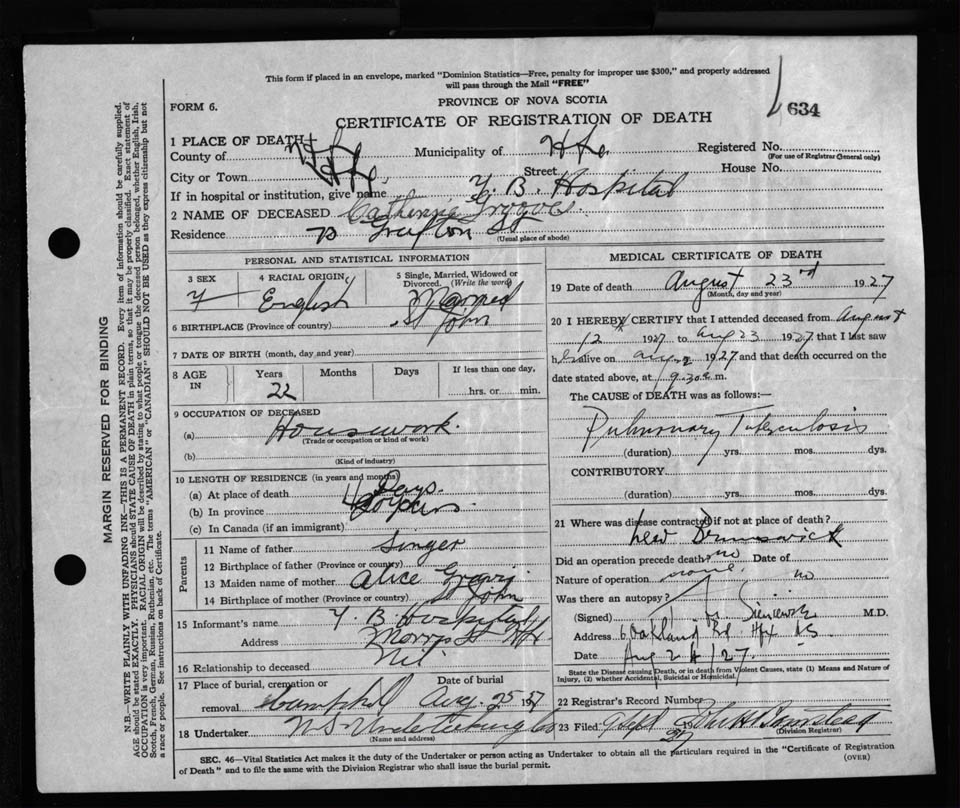 This form if placed in an envelope, marked "Dominion Statistics—Free, penalty for improper use $300," and properly addressed
will pass through the Mail "FREE"
634
FORM 6.
PROVINCE OF NOVA SCOTIA
CERTIFICATE OF REGISTRATION OF DEATH
1 PLACE OF DEATH
County of Hfx Municipality of Hfx Registered No.
(For use of Registrar General only)
City or Town Hfx. Street House No.
If in hospital or institution, give name T. B. Hospital
2 NAME OF DECEASED Catherine
Residence Grafton St
(Usual place of abode)
PERSONAL AND STATISTICAL INFORMATION
3 SEX 4 RACIAL ORIGIN 5 Single, Married, Widowed or Divorced. (Write the word)
F English Married
6 BIRTHPLACE (Province of country) St John
7 DATE OF BIRTH (month, day and year)
8 AGE IN Years Months Days If less than one day,
22 hrs. or min.
9 OCCUPATION OF DECEASED
(a) Housework.
(Trade or occupation or kind of work)
(b)
(Kind of industry)
10 LENGTH OF RESIDENCE (in years and months)
(a) At place of death Days
(b) In province
(c) In Canada (if an immigrant)
Parents
11 Name of father Singer
12 Birthplace of father (Province or country)
13 Maiden name of mother Alice
14 Birthplace of mother (Province or country) St John
15 Informant's name T. B. Hospital
Address Morris St Hfx
16 Relationship to deceased Nil
17 Place of burial, cremation or removal Date of burial
Camphill Aug 25 1927
18 Undertaker N S Undertaking Co
(Name and address)
MEDICAL CERTIFICATE OF DEATH
19 Date of death August 23rd 1927
(Month, day and year)
20 I HEREBY CERTIFY that I attended deceased from August
12 1927 to Aug 23 1927 that I last saw
h er alive on Aug 1927 and that death occurred on
date stated above, at 9.30 m.
The CAUSE of DEATH was as follows:
Pulmonary Tuberculosis
(duration) yrs. mos. dys.
CONTRIBUTORY
(duration) yrs. mos. dys.
21 Where was disease contracted if not at place of death?
New Brunswick
Did an operation precede death? no Date of
Nature of operation none.
Was there an autopsy? no
(Signed) M.D.
Address Oakland Rd Hfx NS
Date Aug 24/27
State the Disease causing Death, or in death from Violent Causes, state (1) Means and Nature of
Injury, (2) whether Accidental, Suicidal or Homicidal.
22 Registrar's Record Number
23 Filed Sept 19
(Division Registrar)
SEC. 46—Vital Statistics Act makes it the duty of the Undertaker or person acting as Undertaker to obtain all the particulars required in the "Certificate of Registration
of Death" and to file the same with the Division Registrar who shall issue the burial permit.
(OVER)
MARGIN RESERVED FOR BINDING
N.B.—WRITE PLAINLY WITH UNFADING INK—THIS IS A PERMANENT RECORD. Every item of information should be carefully supplied.
AGE should be stated EXACTLY. PHYSICIANS should STATE CAUSE OF DEATH in plain terms, so that it may be properly classified. Exact statement of
OCCUPATION is very important. RACIAL ORIGIN will be described by stating to what people or tongue the deceased person belonged, whether English, Irish,
Scotch, French, German, Russian, Ruthenian, etc. The terms "AMERICAN" or "CANADIAN" SHOULD NOT BE USED as they express citizenship but not
a race or people. See instructions on back of Certificate.